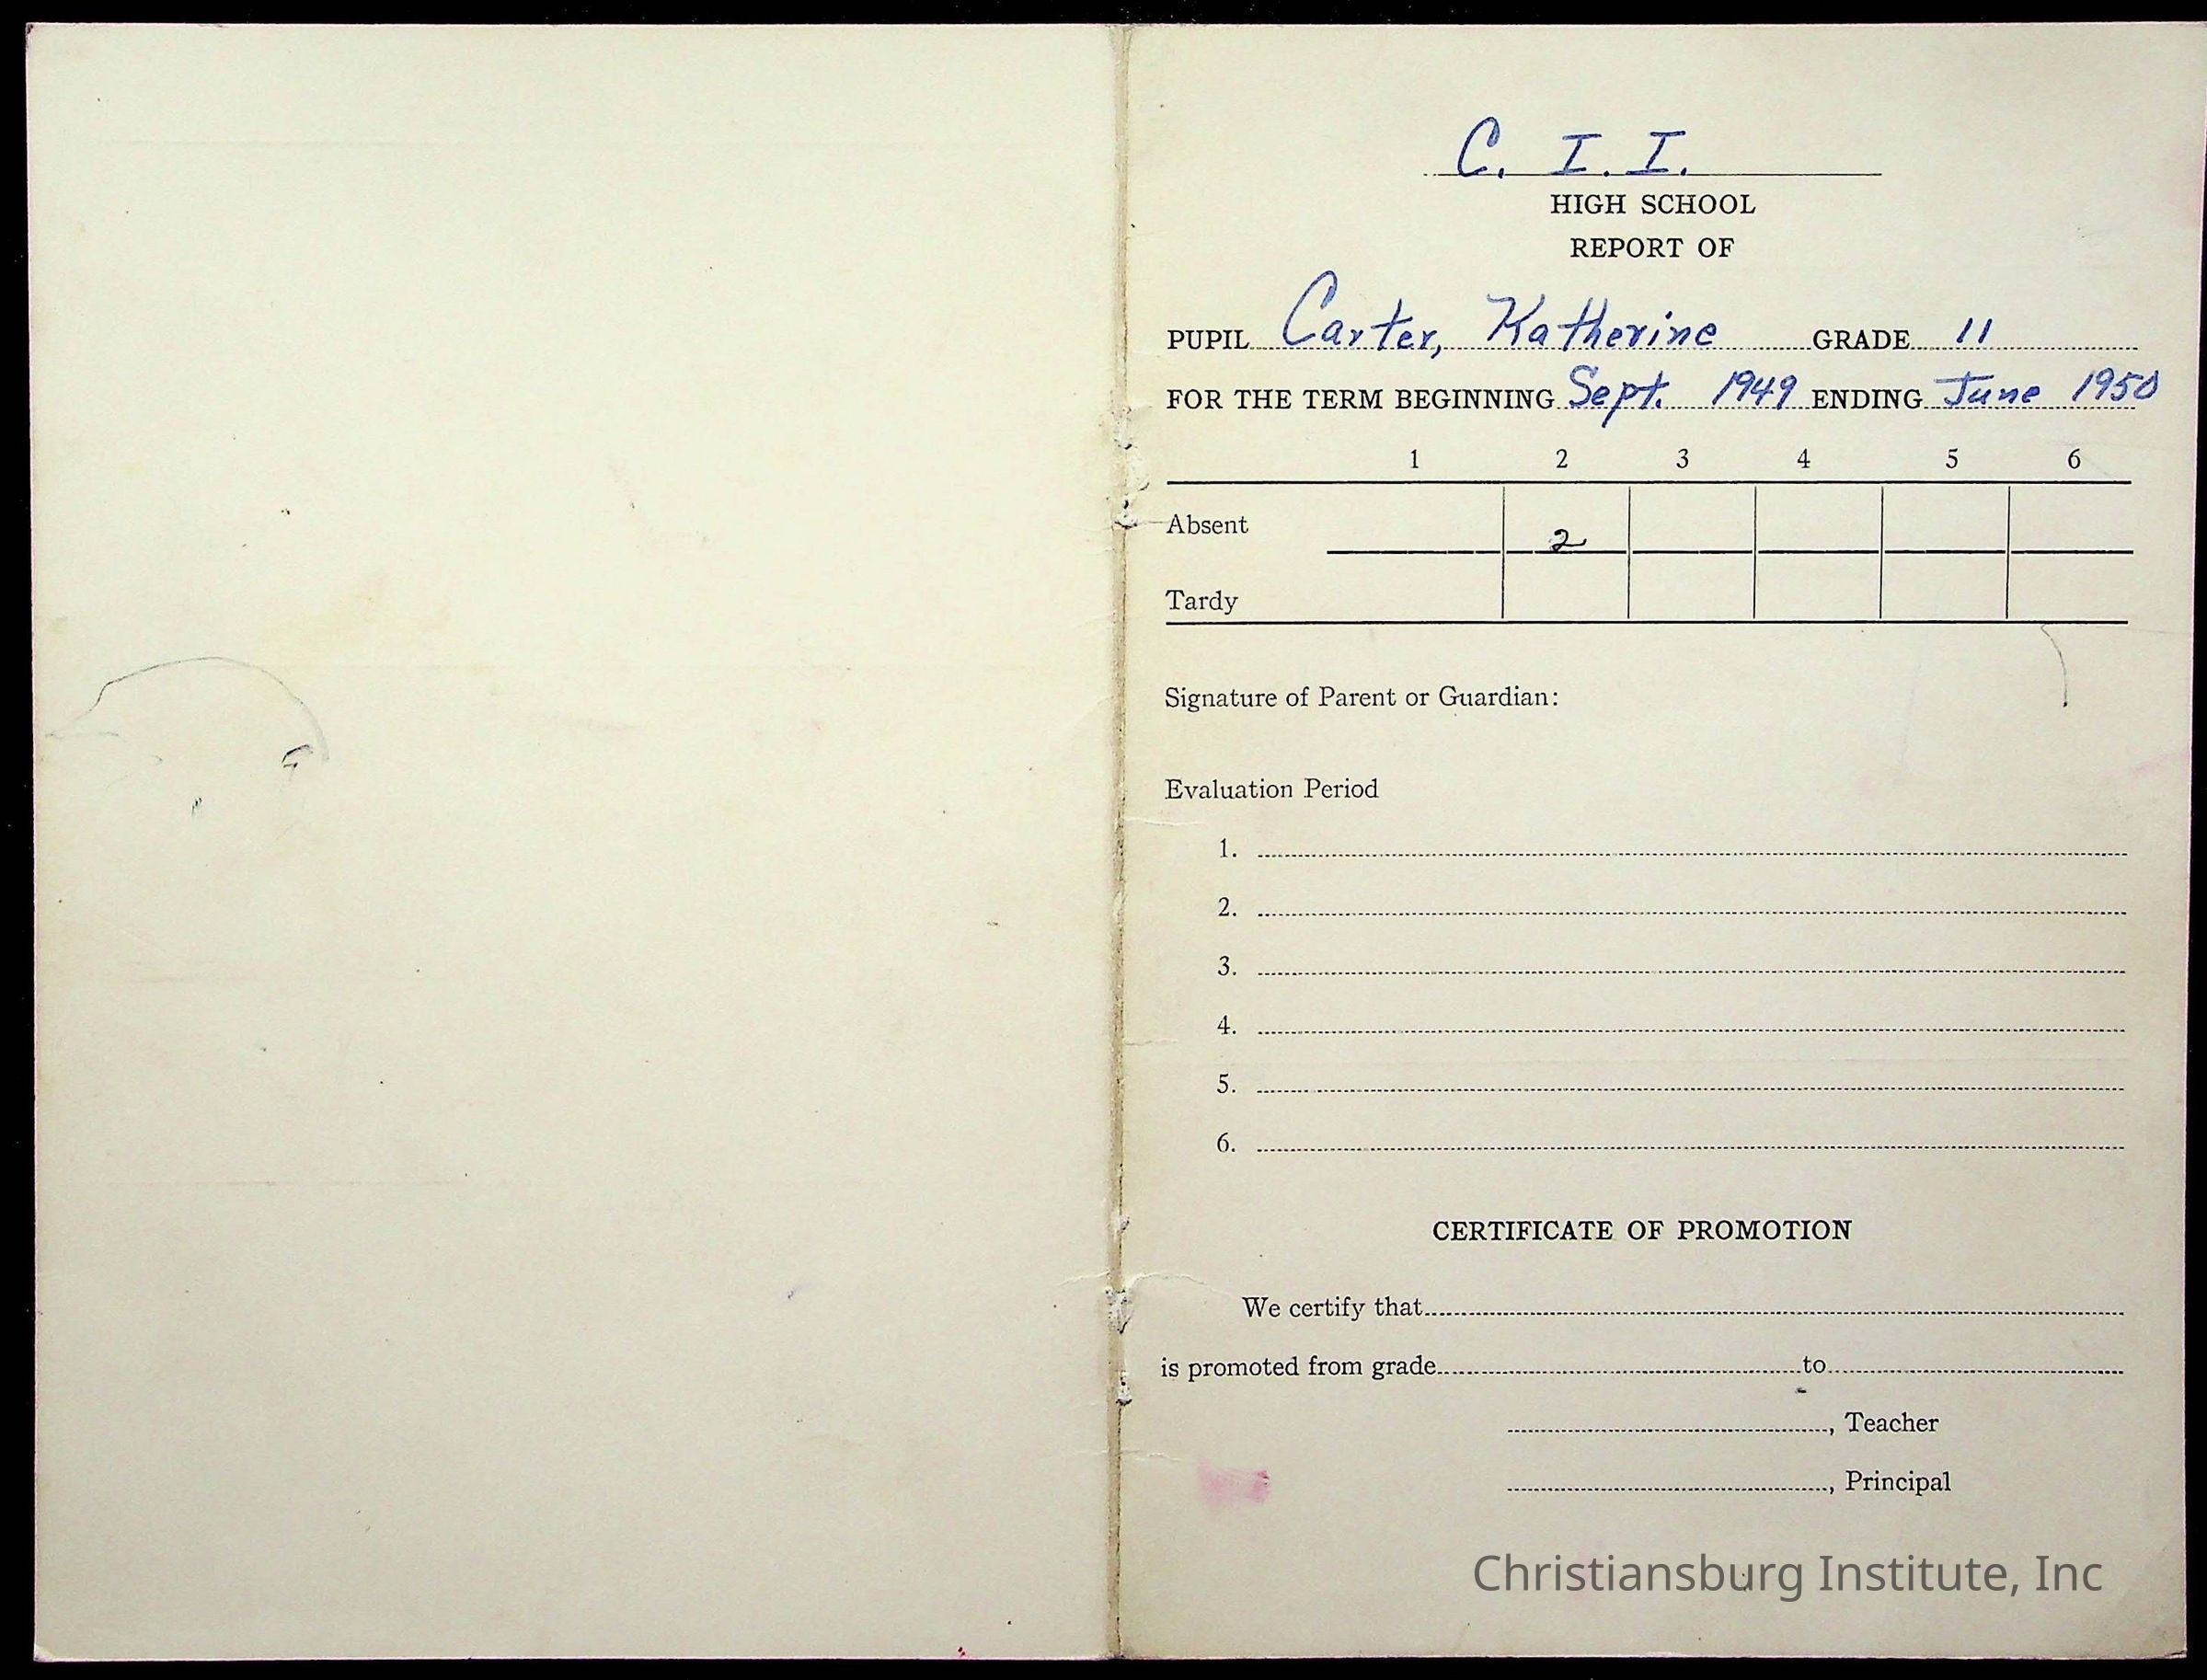 C. I. I.
HIGH SCHOOL
REPORT OF
PUPIL Carter, Katherine GRADE 11
FOR THE TERM BEGINNING Sept. 1949 ENDING June 1950
1 2 3 4 5 6
Absent 2
Tardy
Signature of Parent or Guardian:
Evaluation Period
1.
2.
3.
4.
5.
6.
CERTIFICATE OF PROMOTION
We certify that
is promoted from grade to
, Teacher
, Principal
Christiansburg Institute, Inc